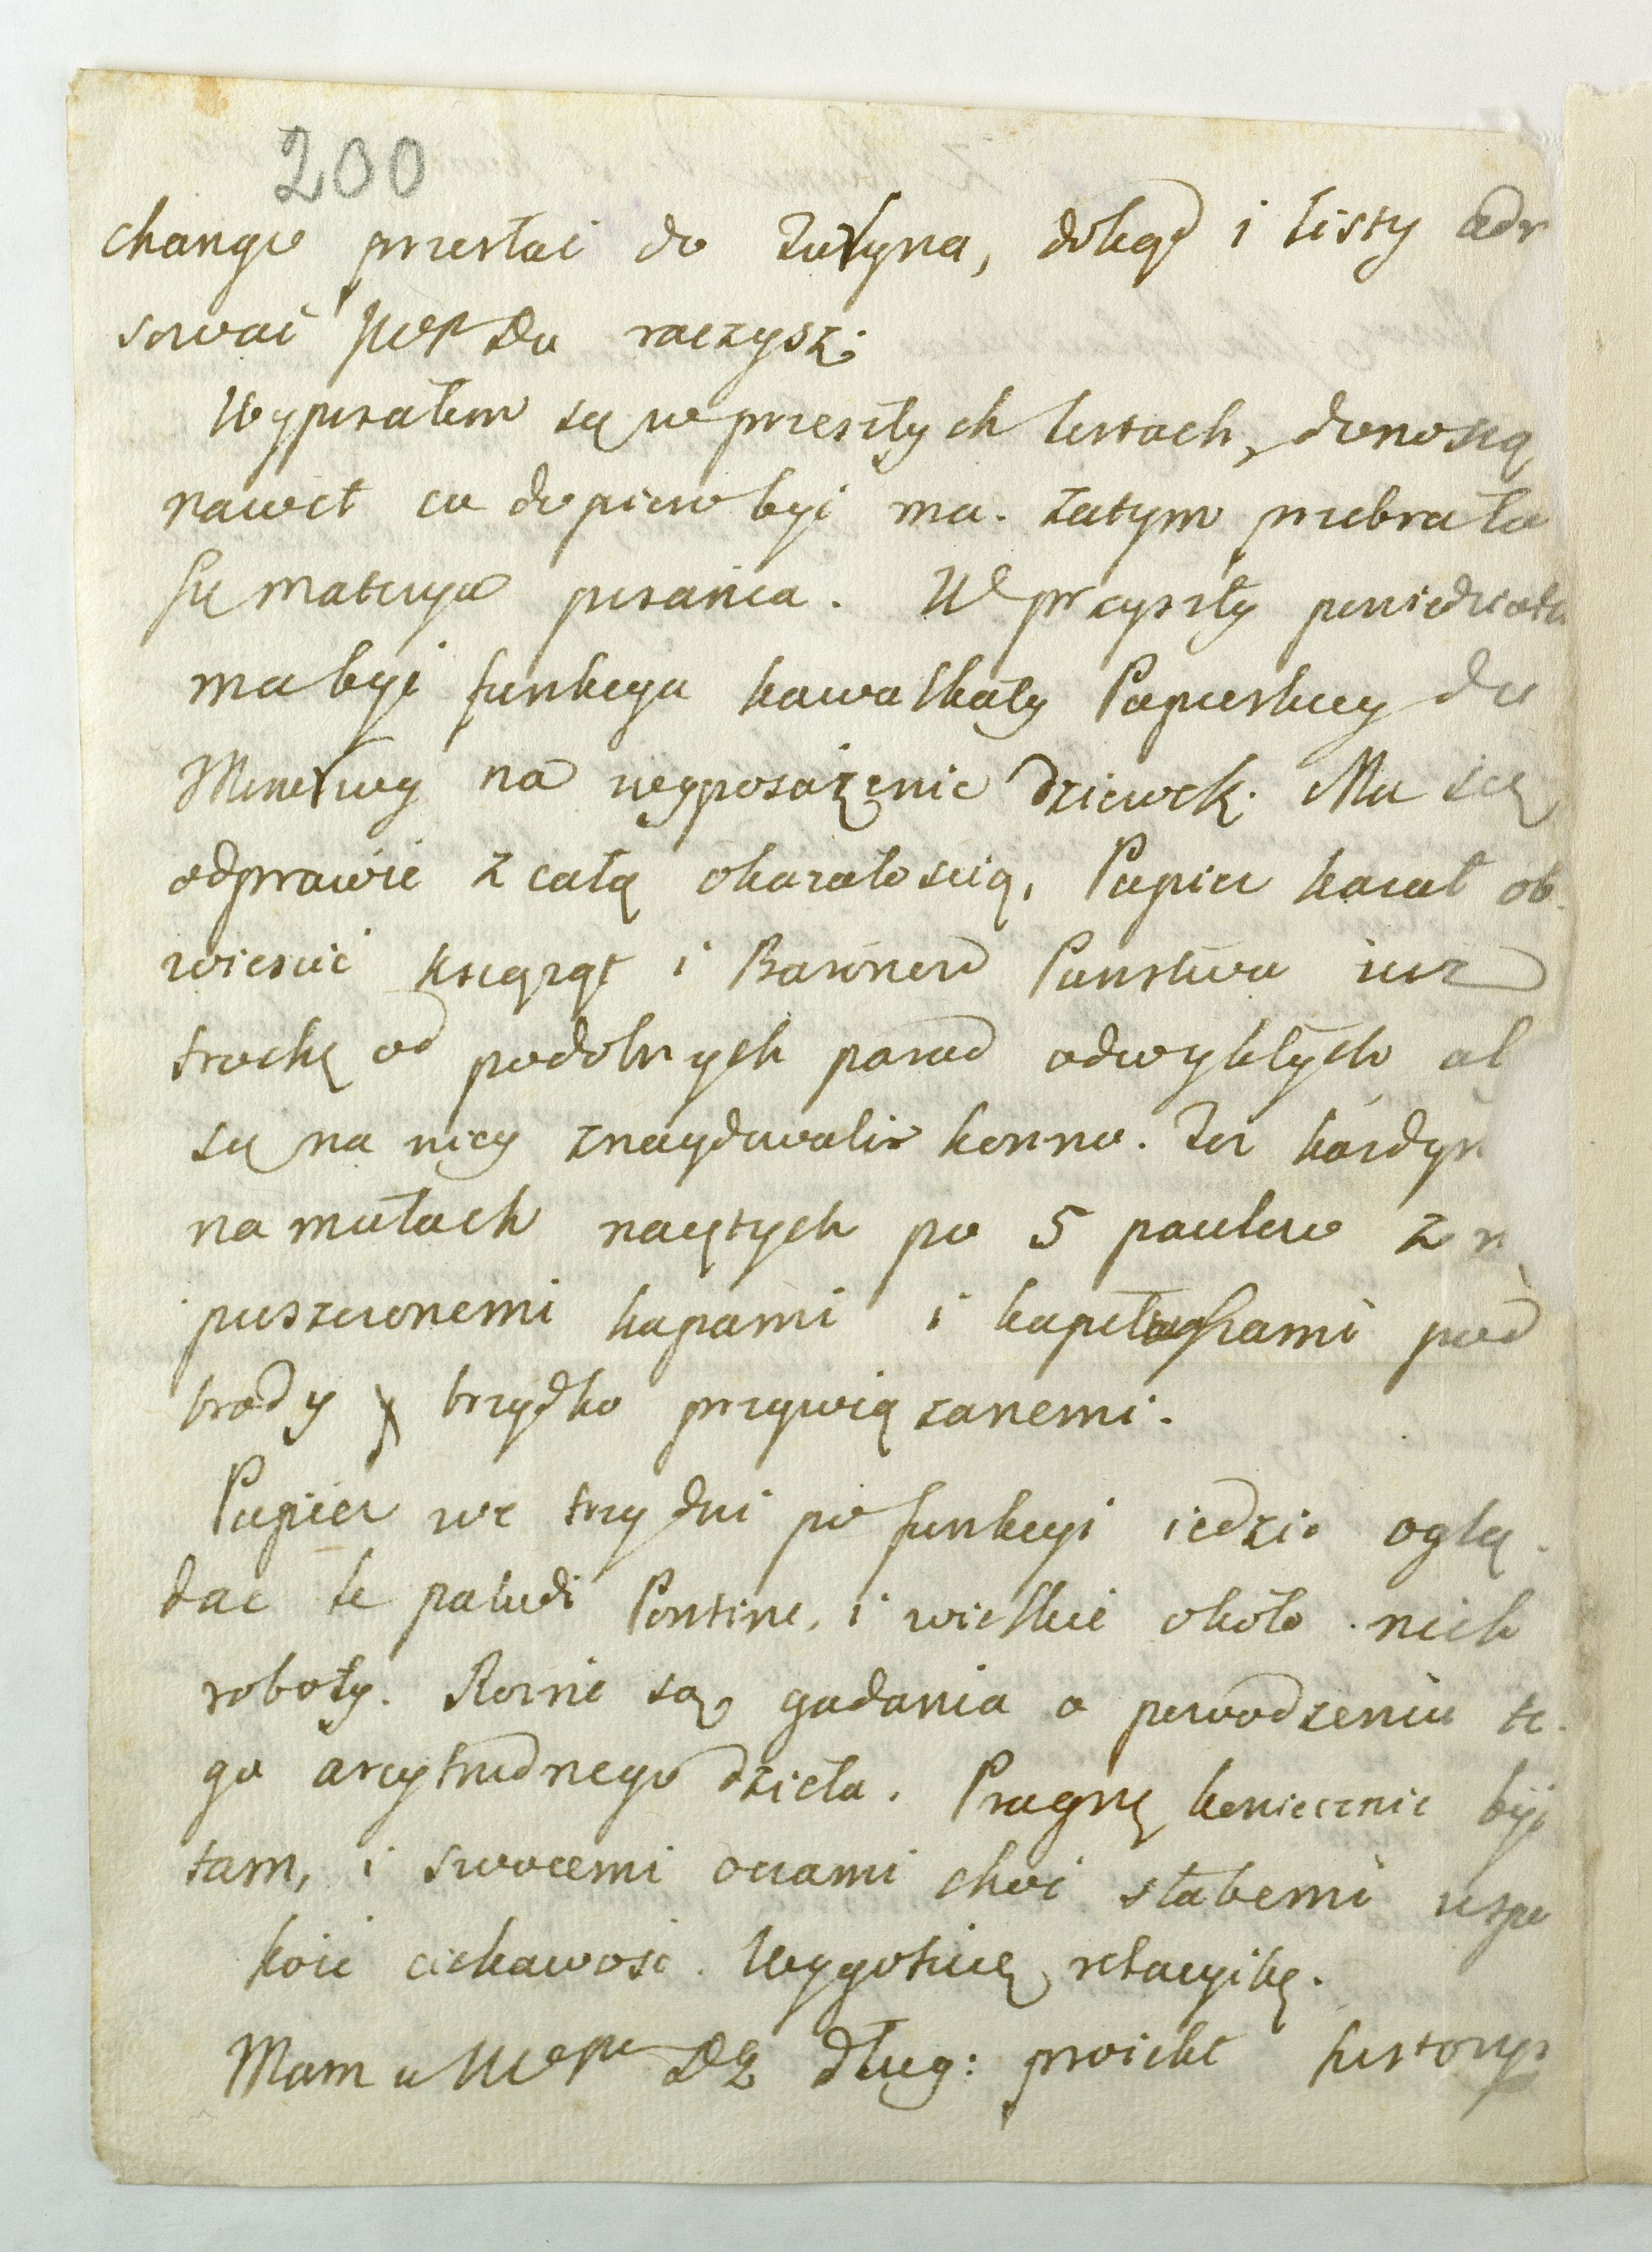 200
change przesłać do Turyna, dokąd i listy adr
sować WPan Do raczysz.
Wypisałem się w przeszłych listach, donosząc
nawet co dopiero być ma. Zatym przebrała
się materya pisania. W przyszły poniedziałe
ma być funkcya kawalkaty Papieskiey do
Minerwy na wyposażenie dziewek. Ma się
odprawić z całą okazałością, Papież kazał ob-
wieścić książąt i Baronow Panstwa iuż
trochę od podobnych parad odwykłych ab
się na niey znaydowali konno. Toż kardyn
na mułach naiętych po 5 paulow z r
puszczonemi kapami i kapeluszami pod
brody brzydko przywiązanemi.
Papież we trzy dni po funkcyi iedzie oglą-
dac te paludi Pontine, i wielkie około nich
roboty. Rożne są gadania o powodzeniu te-
go arcytrudnego dzieła. Pragnę koniecznie być
tam, i swoiemi oczami choć słabemi uspo
koić ciekawość. Wygotuię relacyikę.
Mam u dług: proiekt history